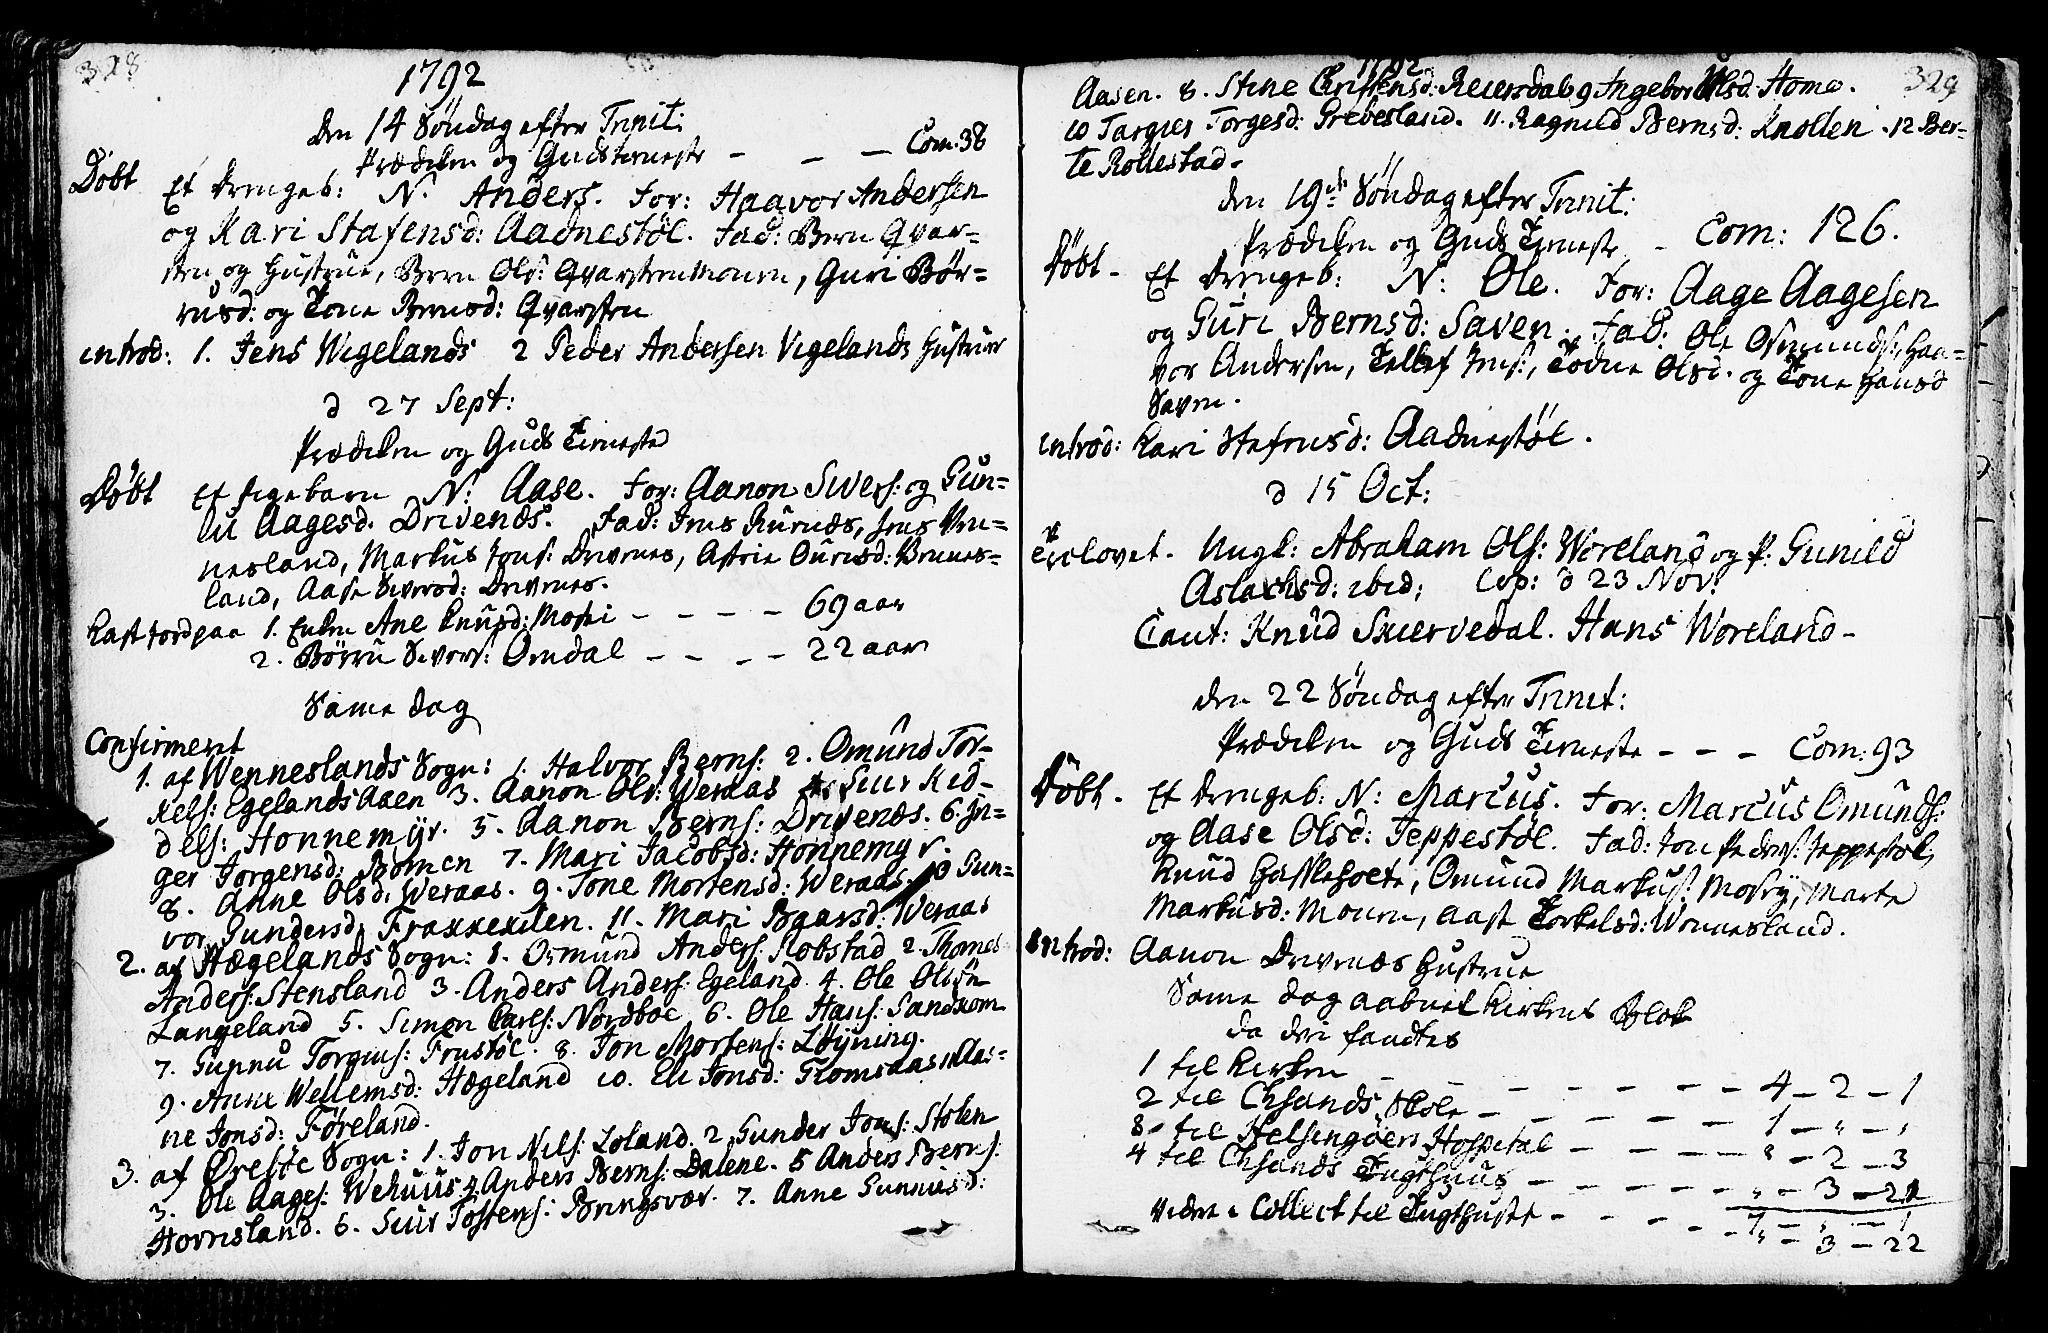 328
1792
Den 14 Söndag efter Trinit:
Prædiken og Gudstieneste - - - Com. 38
Döbt Et Drengeb: N. Anders. For: Haavor Andersen
og Kari Stafensd: Aadnestöl. Fad: Bern Qvar-
sten og Hustrue, Bern Ols: Qvarstenmouen, Guri Bör-
rusd: og Tone Berusd: Qvarsten
introd: 1. Jens Wigelands 2 Peder Andersen Vigelands Hustruer
d 27 Sept:
Prædiken og Guds Tieneste
Döbt Et Pigebarn N: Aase. For: Aanon Sivers: og Gun-
lu Aagesd. Drivenes. Fad: Jens Rurnes, Jens Ven-
nesland, Markus Jens: Drivenes, Astrie Ourisd: Vennes-
land, Aase Siversd: Drivenes.
Kast Jord paa 1. Enken Ane Knudsd: Mosbi - - - - 69 aar
2. Börru Sivers: Omdal - - - - 22 aar
Same Dag
Confirmerit
1. af Wenneslands Sogn: 1. Halvor Berns: 2. Omund Tor-
kels: Egelands Aaen 3. Aanon Ols: Weraas 4. Siur Kid-
dels: Honnemyr. 5. Aanon Berns: Drivenes. 6. In-
ger Jorgensd: Bomen 7. Mari Jacobsd: Honnemyr.
8. Anne Olsd: Weraas. 9. Tone Mortensd: Weraas. 10 Gun-
vor Gundersd, Frakkekilen. 11. Mari Baarsd: Weraas
2. af Hægelands Sogn: 1. Osmund Anders: Robstad 2. Thomes
Anders: Stensland 3. Anders Anders: Egeland. 4. Ole Olsön
Langeland 5. Simon Carls: Nordboe 6. Ole Hans: Sandkom
7. Gunnu Torgius: Frustöl. 8. Jon Mortens: Löyning.
9. Anne Wellemsd: Hægeland 10. Eli Jonsd: Fromraas 11 Aas-
ne Jonsd: Föreland.
3. af Öreböe Sogn: 1. Jon Nils: Loland. 2 Gunder Jons: Stolen
3. Ole Aages: Wehuus 4 Anders Berns: Dalene. 5 Anders Berns:
Hornisland. 6. Siur Tostens: Bringsvær. 7. Anne Gunnusd:
1792
329
Aasen. 8. Stine Christensd: Reiersdal 9 Ingebor Olsd: Home.
10 Targier Torgesd: Grebesland. 11. Ragnild Bernsd: Knollen. 12 Ber-
te Rollestad.
Den 19de Söndag efter Trinit:
Prædiken og Guds Tieneste - Com: 126.
Döbt. Et Drengeb: N: Ole. For: Aage Aagesen
og Guri Bernsd: Saven. Fad: Ole Osmunds:, Haa-
vor Andersen, Tellef Jens:, Todne Olsd. og Tone Hansd
Saven.
introd: Kari Stefensd: Aadnestöl.
d 15 Oct:
Trolovet. Ungk: Abraham Ols: Woreland og P: Gunild
Aslachsd: ibid; Cop: d 23 Nov:
Caut: Knud Skiervedal. Hans Woreland-
Den 22 Söndag efter Trinit:
Prædiken og Guds Tieneste - - - Com: 93
Döbt. Et Drengeb: N: Marcus. For: Marcus Omunds:
og Aase Olsd: Jeppestöl. Fad: Jon Peders: Jeppestöl,
Knud Haslehoete, Omund Markus: Mosby, Marte
Markusd: Mouen, Aase Torkelsd: Wennesland.
Introd: Aanon Drivenes Hustrue
Same Dag aabnet Kirkens Blok
da deri fandtes
1 til Kirken - - - - - - - 4 - 2 - 1
2 til Chsands Skole - - - - - - 1 - " - "
3 til Helsingöers Hospital - - - - - " - 2 - 3
4 til Chsands Tugthuus - - - - - - " - 3 - 21
7 - " - 1
videre i Collect til Tugthuset - - - - - " - 3 - 22